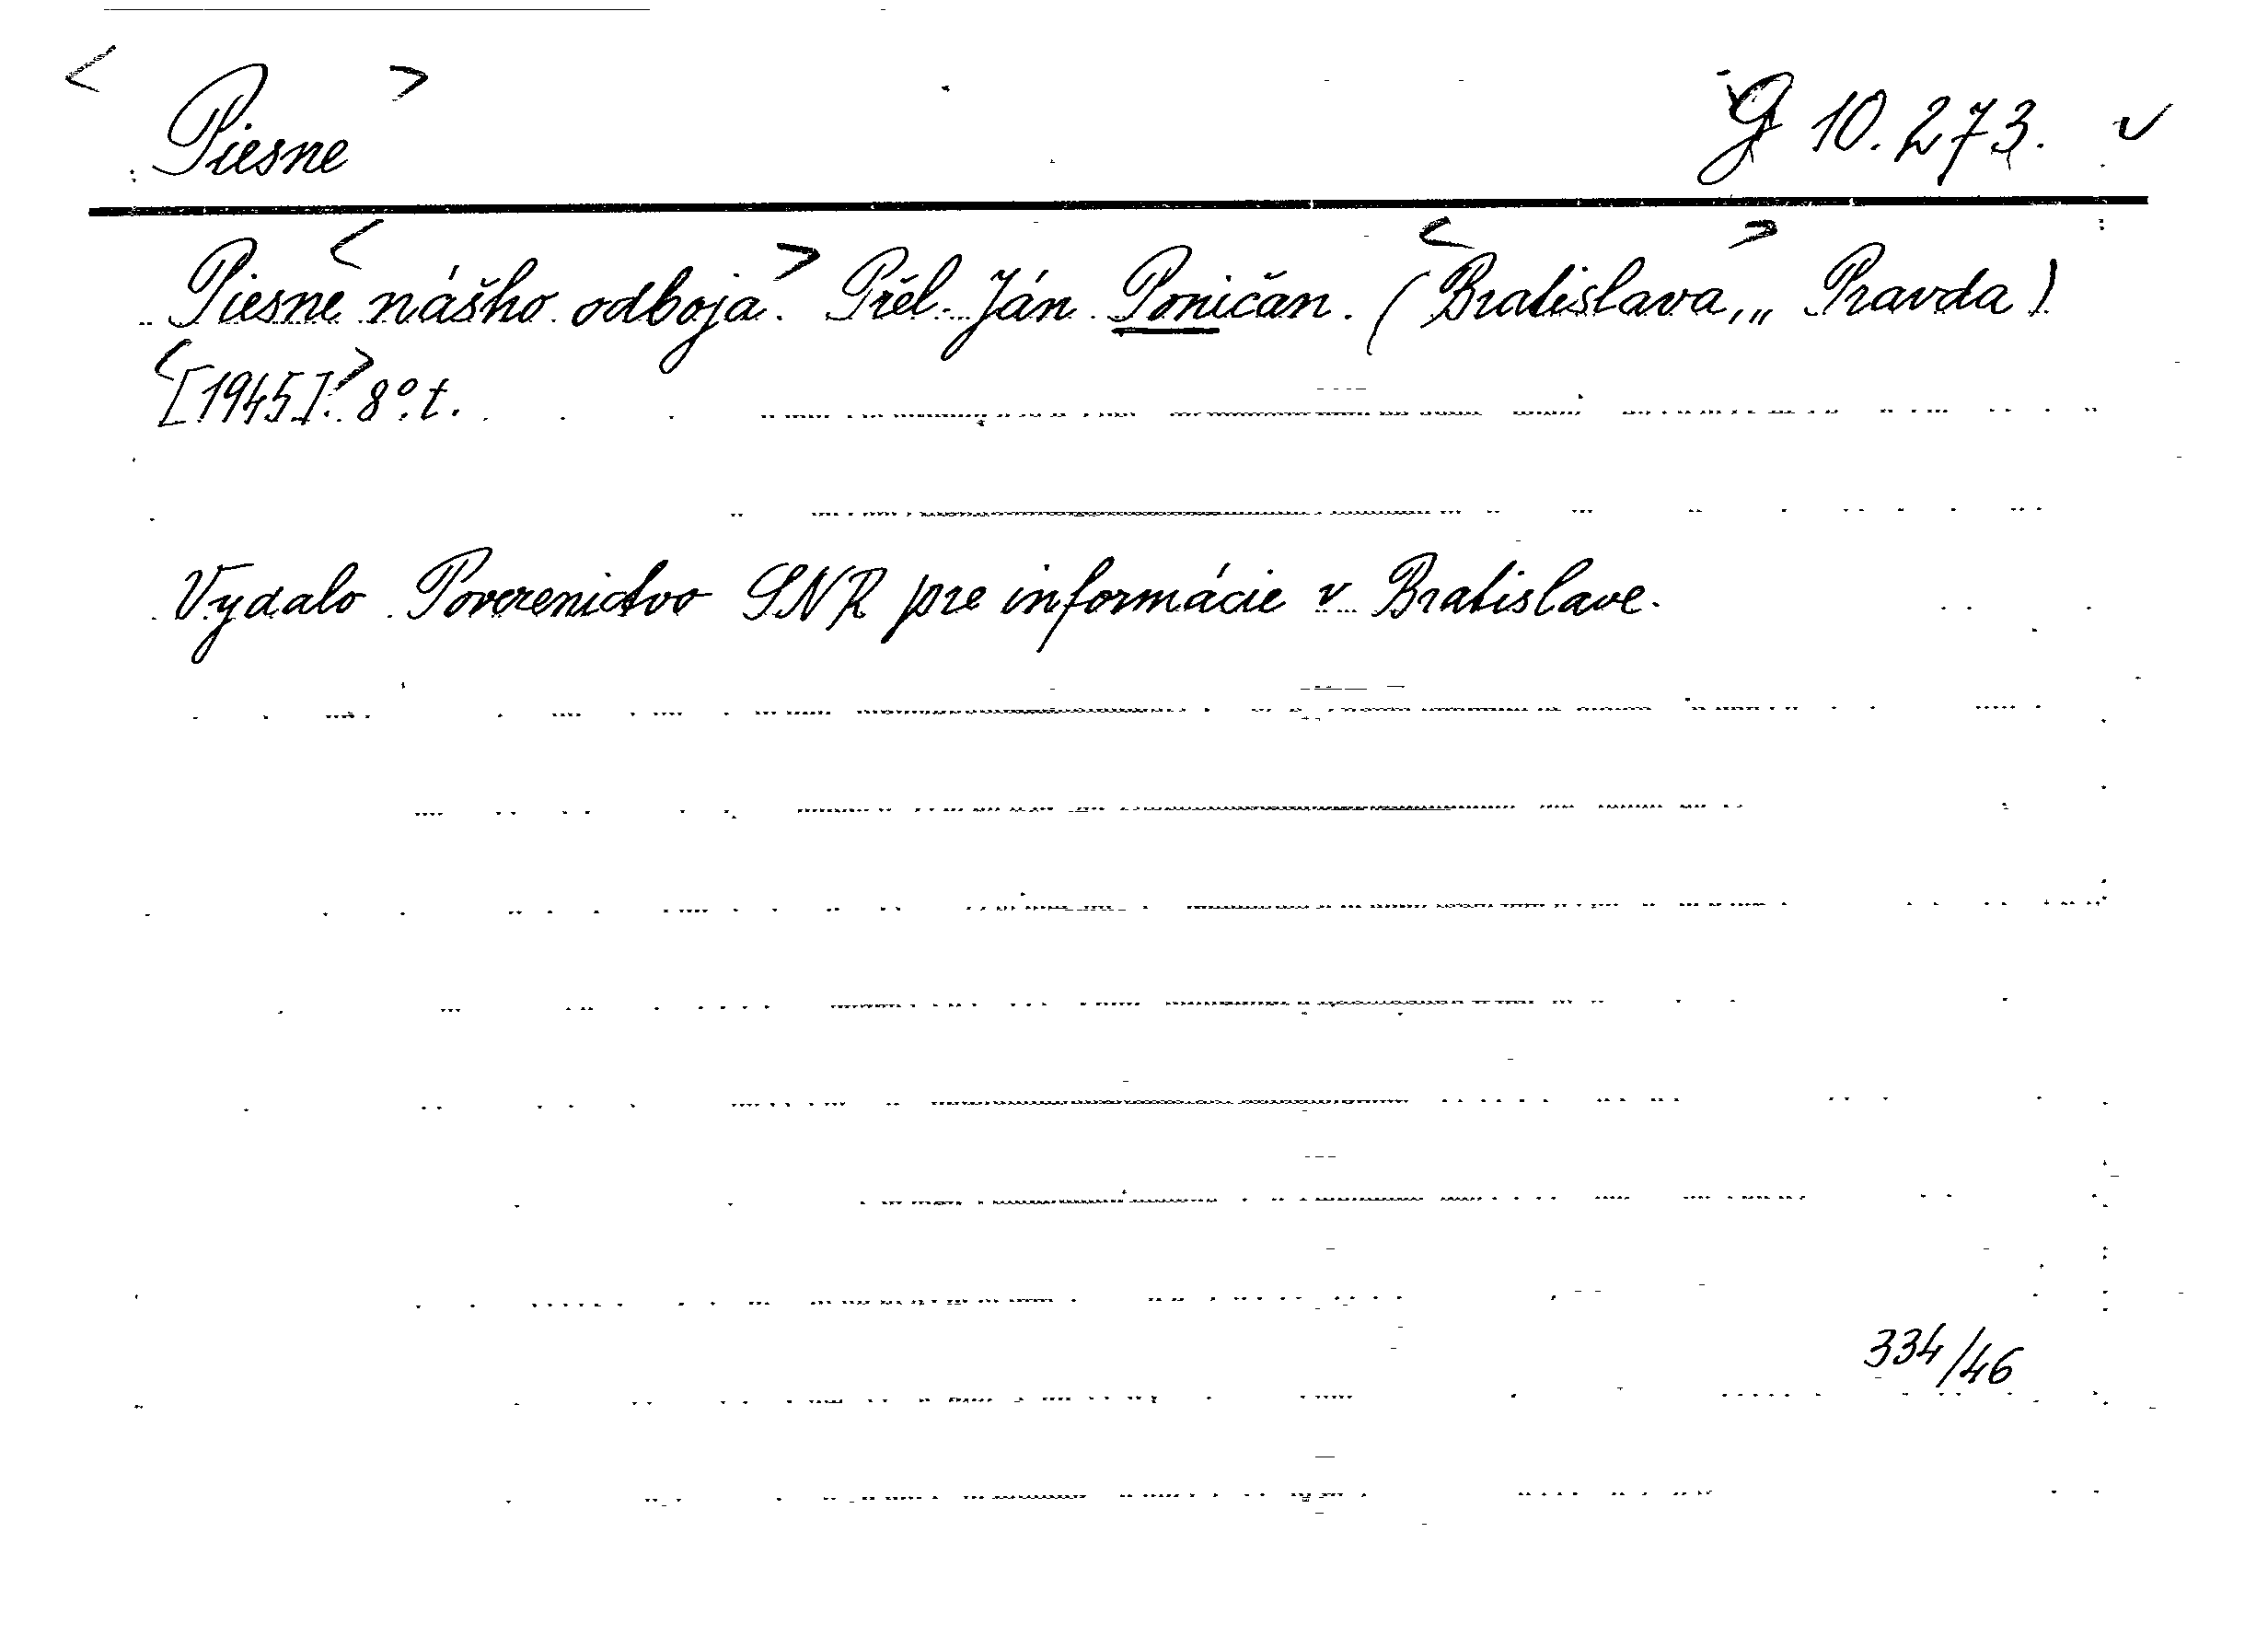 < Piesne > G 10.273. v
Piesne <nášho odboja>. Přel. Ján Poničan. (<Bratislava,> „ Pravda)
<[1945].> 8°. t.
Vydalo Poverenictvo SNR pre informácie v Bratislave.
334/46